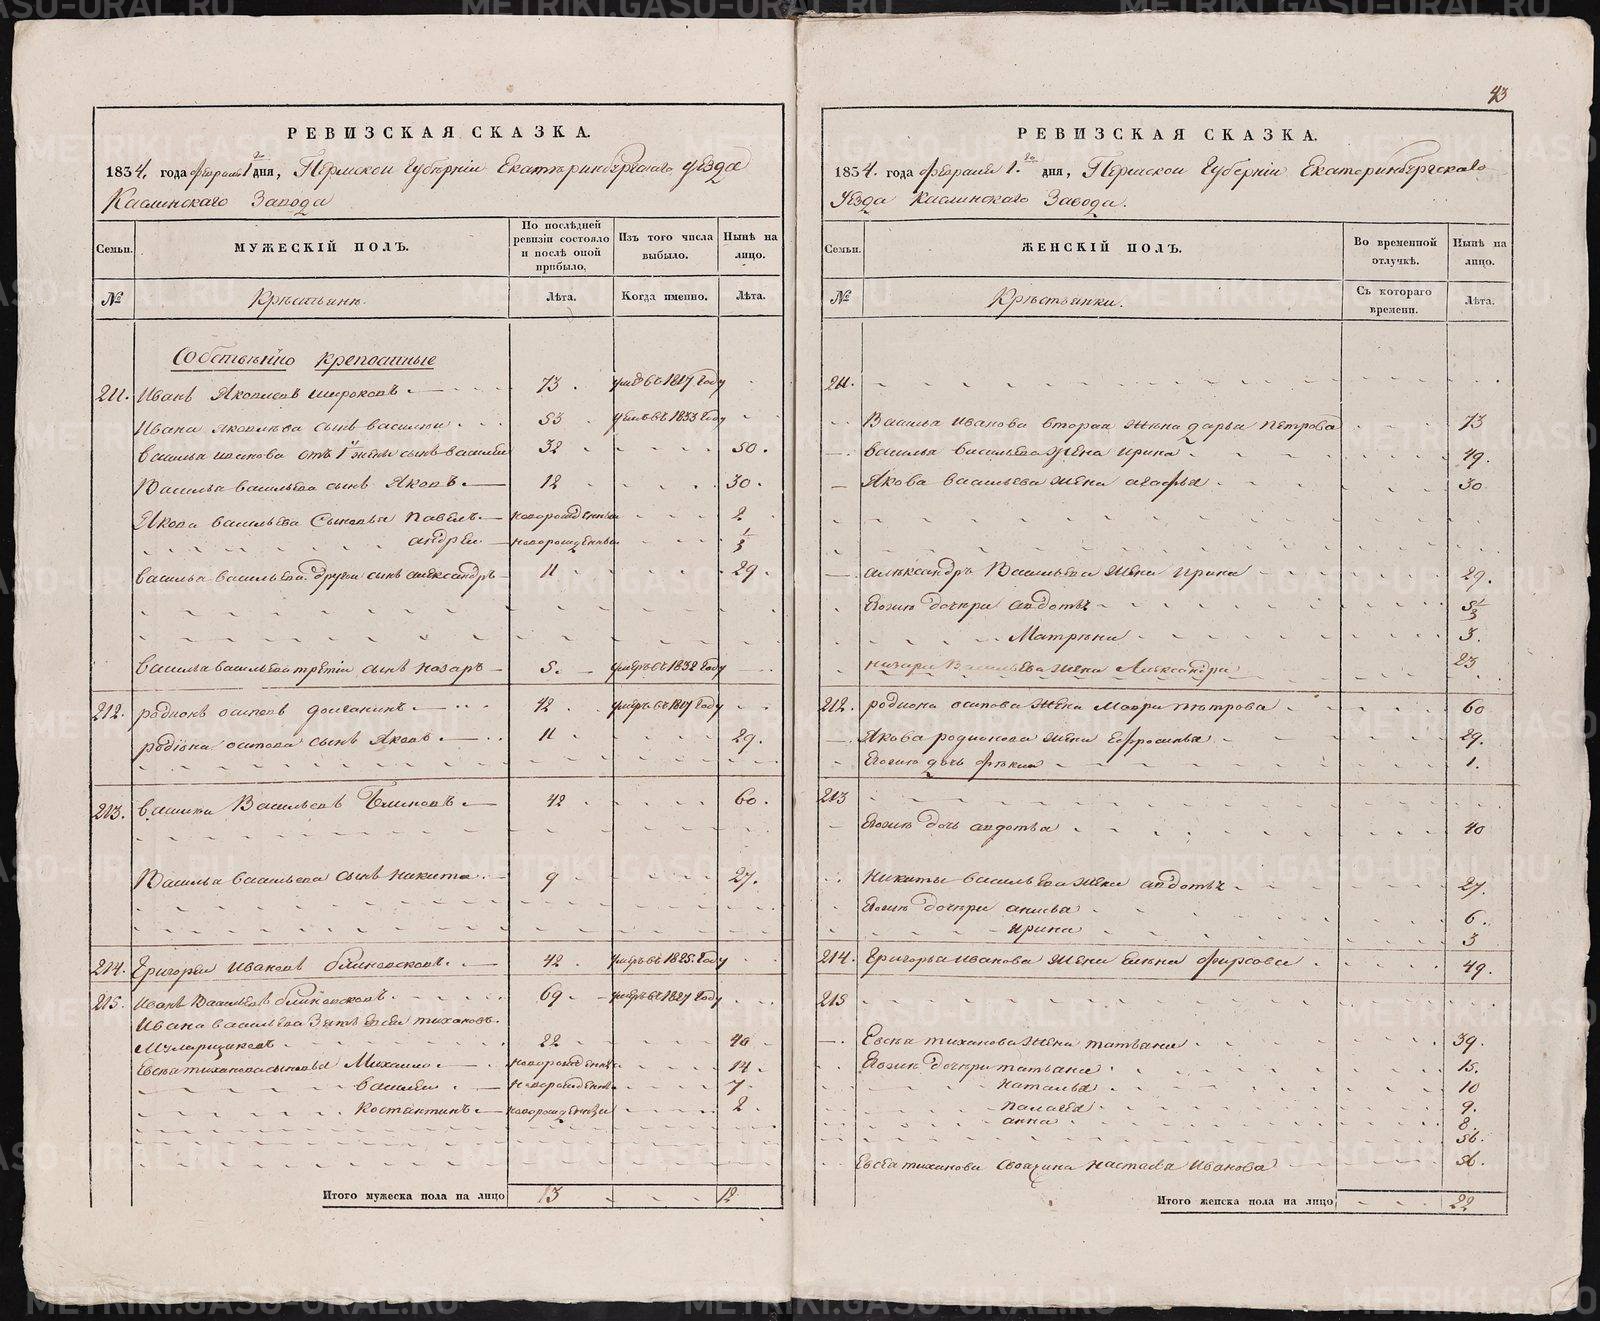 43
РЕВИЗСКАЯ СКАЗКА.
1834. года февраля 1го дня, Пермской Губернiи Екатеринбургскаго уѣзда
Каслинскаго Завода
Семьи.
МУЖЕСКIЙ ПОЛЪ.
По послѣдней ревизiи состояло и послѣ оной прибыло,
Изъ того числа выбыло.
Нынѣ на лицо.
№
Крестьяне.
Лѣта.
Когда именно.
Лѣта.
Собственно крепостные
211. Иванъ Яковлевъ широковъ 73 умре въ 1817 Году
Ивана Яковлева сынъ василеи 53 умеръ въ 1833 Году
василья иванова отъ 1й жены сынъ василеи 32 50.
Василья васильева сынъ Яковъ 12 30.
Якова васильева Сыновья павелъ новорожденныи 2
андреи новорожденныи 1/3
василья васильева другои сынъ александръ 11 29.
василья васильева третiи сынъ назаръ 5. умеръ въ 1832 Году
212. родионъ осиповъ долганинъ 42 умеръ въ 1817 Году
родiона осипова сынъ Яковъ 11 29.
213. василеи Васильевъ Блиновъ 42 60.
Василья васильева сынъ никита 9 27.
214. Григореи Ивановъ блиновсковъ 42 умеръ въ 1825. Году
215. Иванъ Васильевъ блиновсковъ 69 умеръ въ 1827 Году
Ивана васильева Зять евсеи тихановъ
22 40
Евсея тиханова сыновья Михаило новорожденныи 14
василеи новорожденныи 7
костантинъ новорожденныи 2
Итого мужеска пола на лицо 13 12
РЕВИЗСКАЯ СКАЗКА.
1834. года февраля 1го дня, Пермской Губернiи Екатеринбургскаго
Уѣзда Каслинскаго Завода.
Семьи.
ЖЕНСКIЙ ПОЛЪ.
Во временной отлучкѣ.
Нынѣ на лицо.
№
Крестьянки.
Съ котораго времени.
Лѣта.
211.
Василья иванова вторая жена дарья петрова 73
василья васильева жена ирина 49.
Якова васильева жена агафья 30
александра Васильева жена ирина 29.
Евоиш дочери авдотья 5 1/3
Матрена 3.
назара Васильева жена Александра 23
212. родиона осипова жена Мавра петрова 60
Якова родионова жена Ефросинья 29.
дочь фекла 1.
213
дочь авдотья 40
никиты васильева жена авдотья 27
дочери анисья 6.
ирина 3
214. Григорья иванова жена елена фирсова 49.
215
Евсея тиханова жена татьяна 39.
дочери татьяна 15.
наталья 10
палагея 9.
анна 8.
56.
Евсея тиханова своячина настасья Иванова 56.
Итого женска пола на лицо 22
METRIKI.GASO-URAL.RU